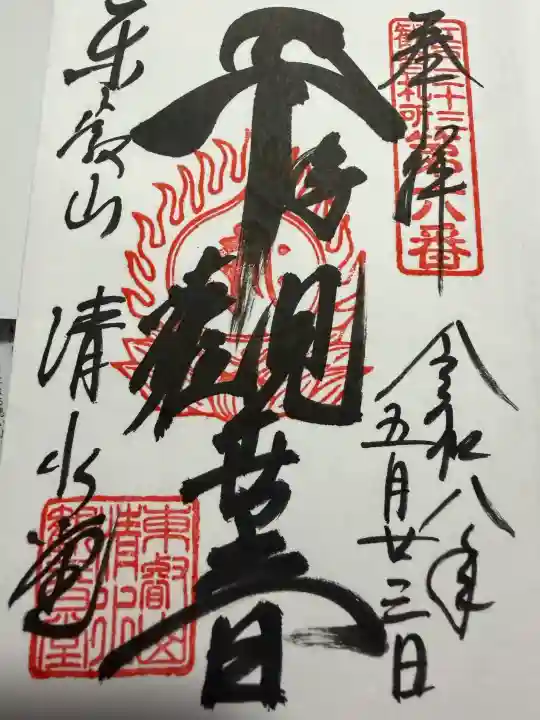 奉拝
江戸三十三
観音札所第六番
令和八年
五月廿三日
千手
観世音
東叡山
清水堂
東叡山
清水
観音堂